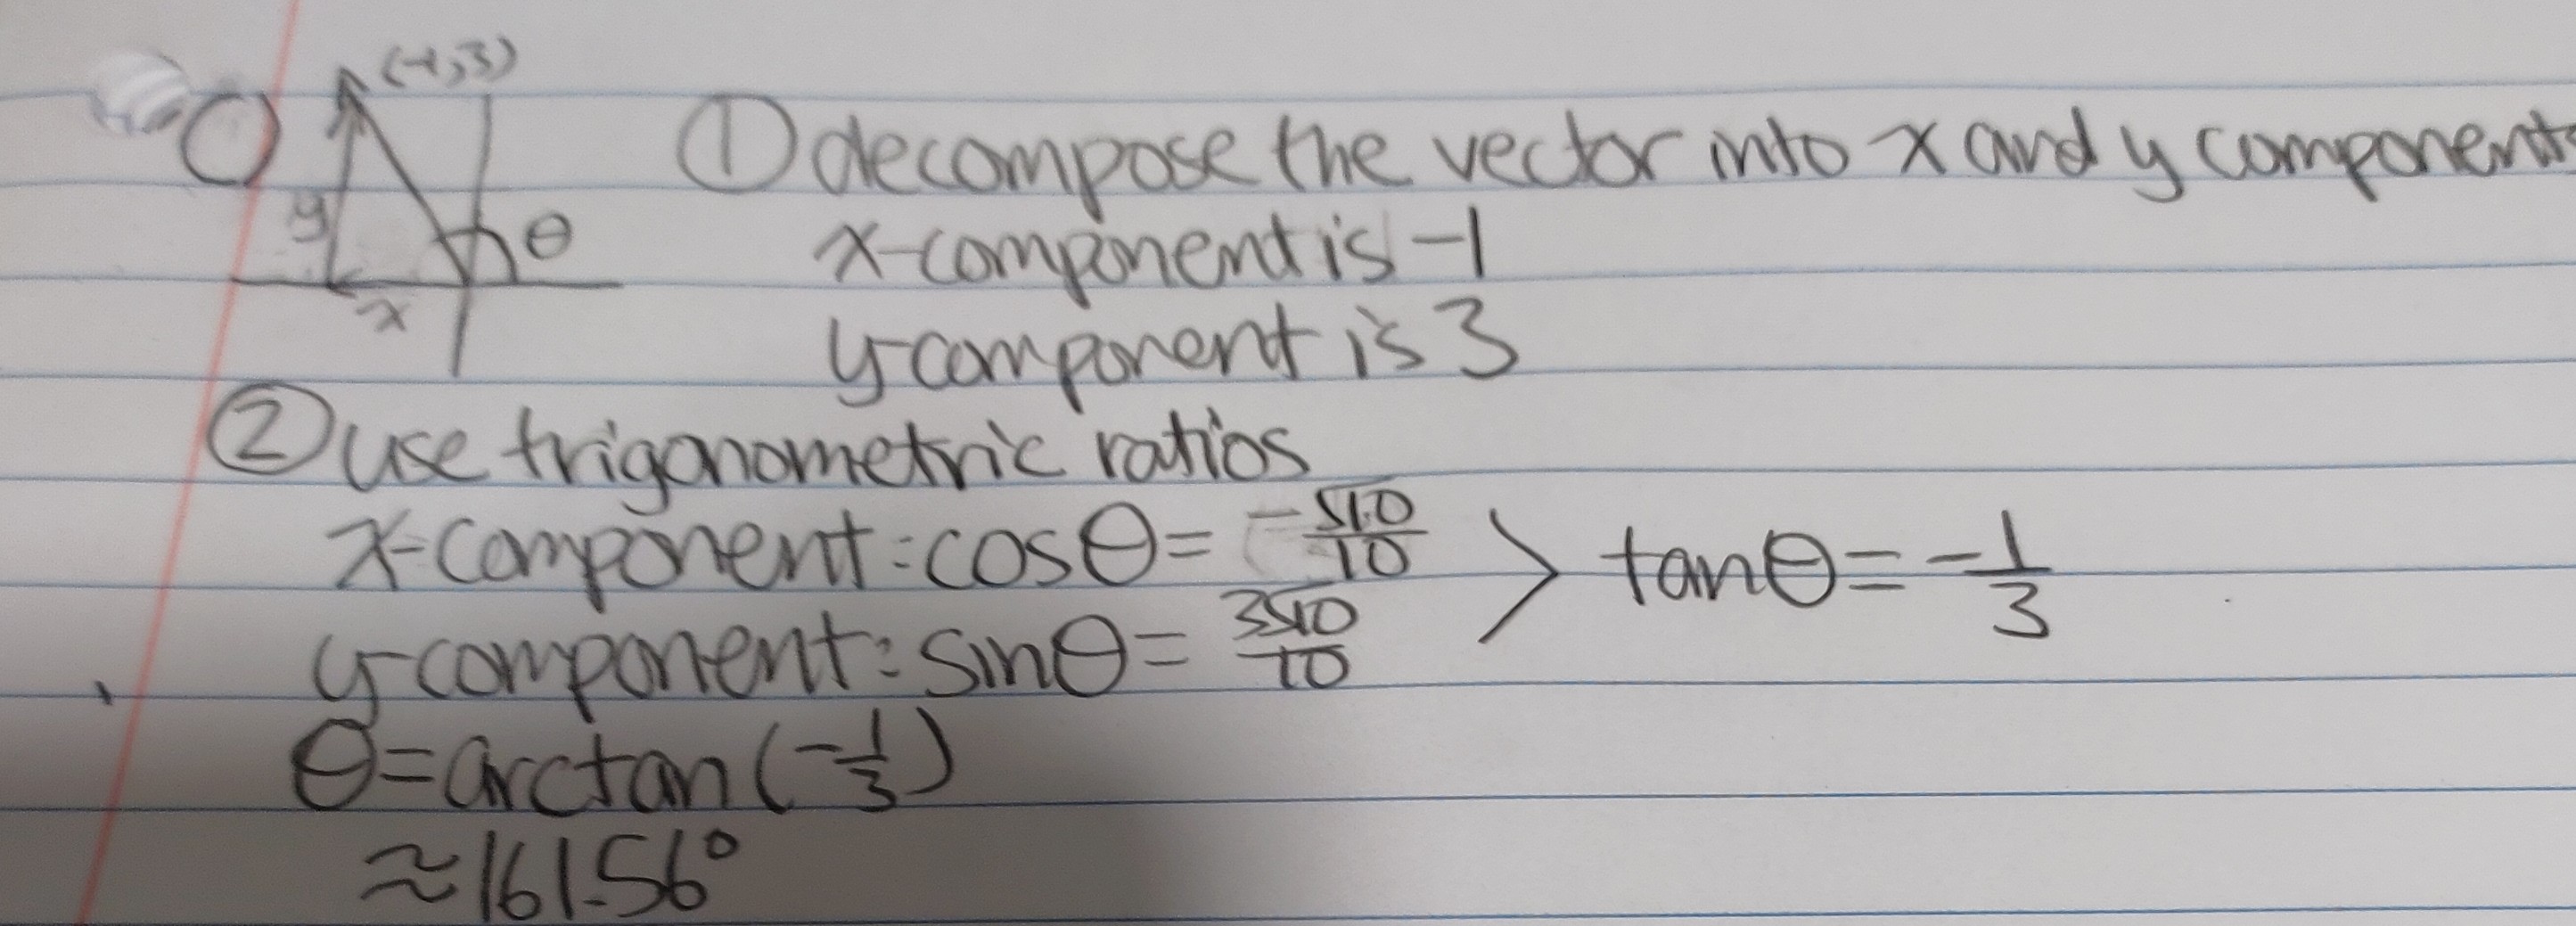 (-1,3)
① decompose the vector into x and y components
y
θ
x-component is -1
x
y-component is 3
② use trigonometric ratios
x-component: cosθ = -√10/10 > tanθ = -1/3
y-component: sinθ = 3√10/10
θ = arctan(-1/3)
≈ 161.56°